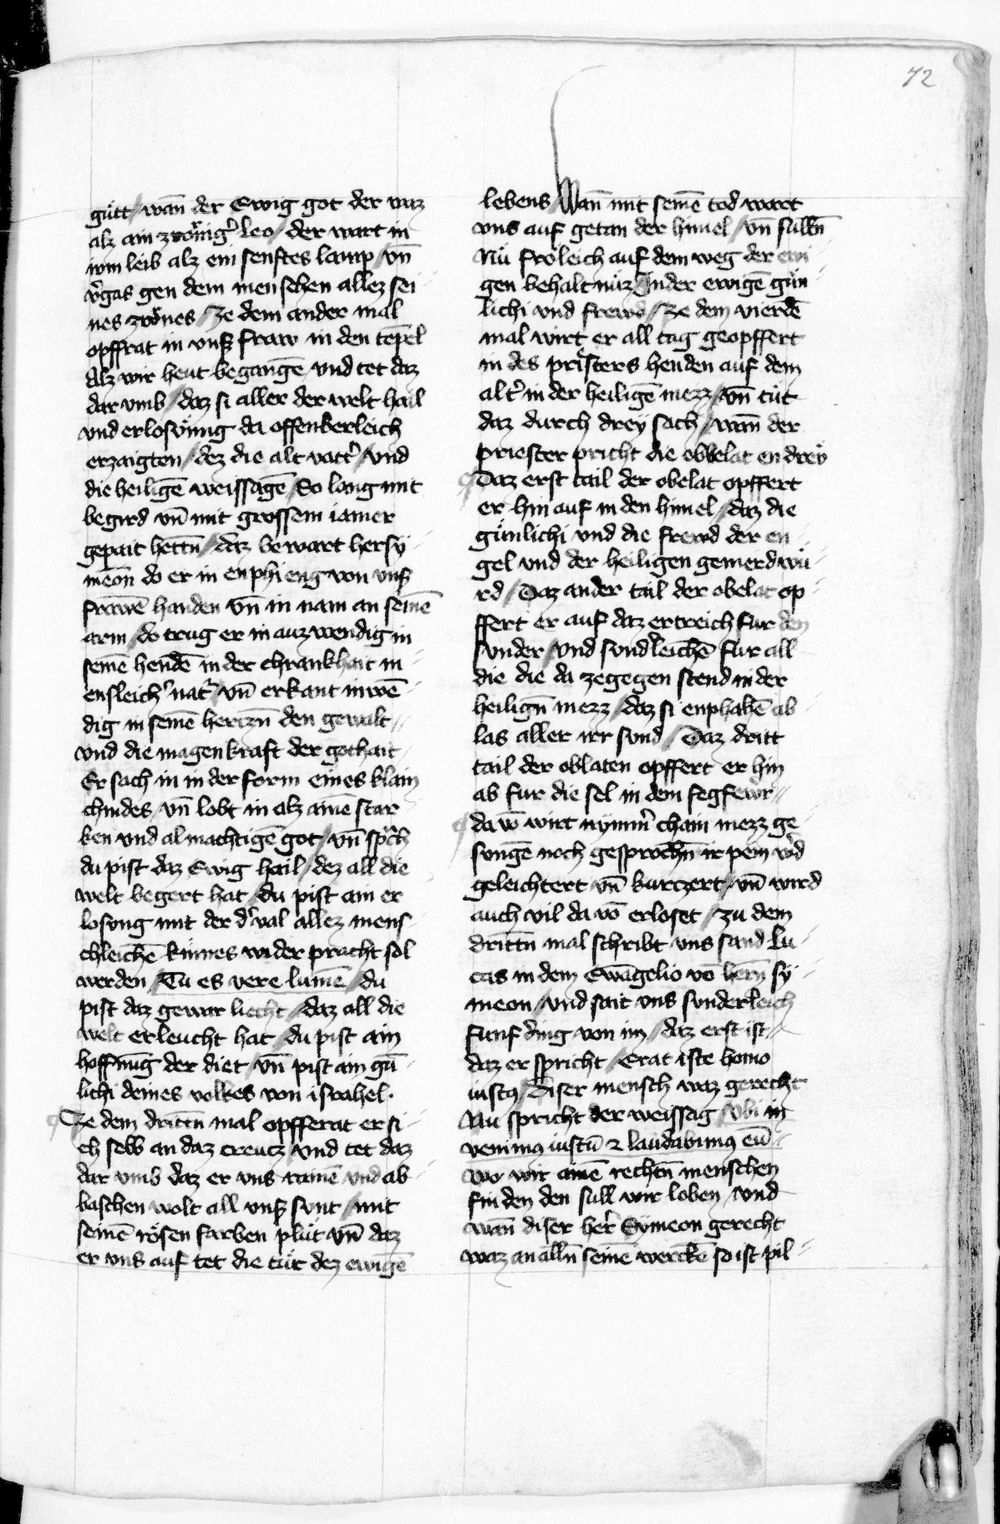 72
gu̇tt / wan̄ der Ewig got der vaz
alz ain zornig' leo / der wart in
irm leib alz ein senftes lamp / vn̄
v'gas gen dem menschen allez sei¬
nes zornes / Ze dem ander mal
opffrat in vnß fraw in den tēpel
Alz wir heut begangē vnd tet daz
dar vmb / daz si aller der welt hail
vnd erlosung da offenberleich
erzaigten / dez die alt vatt' / vnd
die heiligē weissagē / So lang mit
begird vn̄ mit grossem iamer
gepait hettn̄ / daz bewart her sy¬
meon do er in enphieng von vnß
frawē handen vn̄ in nam an seinē
arm / do trug er in auzwendig in
seinē hendē in der chrankhait m¬
ensleich' nat' vn̄ erkant inwē¬
dig in seinē hertzn̄ den gewalt
vnd die magenkraft der gothait
Er sach in in der form eines klain
chindes / vn̄ lobt in alz aine star
ken vnd almachtigē got / vn̄ sp'ch
du pist daz Ewig hail / dez all die
welt begert hat / du pist ain er
losung mit der d' val allez mens¬
chleichē ku̇nnes wider pracht sol
werden / Tu es vere lumē / du
pist daz gewar liecht / daz all die
welt erleucht hat / du pist ain
hoffnūg der diet / vn̄ pist ain gu̇¬
lichi deines volkes von israhel.
Ze dem drittn̄ mal opfferat er si¬
ch selb an daz creutz vnd tet daz
dar vmb daz er vns rainē vnd ab¬
baschen wolt all vnß sunt / mit
seinē rosen farben plu̇t vn̄ daz
er vns auf tet die tu̇r dez ewigē
lebens / Wan̄ mit seinē tod wart
vns auf getan der himel / vn̄ sulln̄
Nu̇ froleich auf dem weg der ewi
gen behaltnu̇z / in der ewigē gu̇n¬
lichi vnd frewd / Ze dem vierdē
mal wirt er all tag geopffert
in des pristers henden auf dem
alt' in der heiligē mezz / vn̄ tu̇t
daz durch drey sach / wan̄ der
priester pricht die obelat en drey
Daz erst tail der obelat opffert
er hin auf in den himel / daz die
gu̇nlichi vnd die frewd der en¬
gel vnd der heiligen gemerd wu̇¬
rd / Daz ander tail der obelat op¬
ffert er auf daz ertreich fur den
sunder / vnd sundleichē fur all
die die da zegegen stend in der
heilign̄ mezz / daz si enphahē ab¬
las aller irr sund / Daz dritt
tail der oblaten opffert er hin
ab fur die sel in dem fegfewr
da vō wirt nymm' chain mezz ge¬
sungē noch gesprochn̄ ir pein w'd
geleichtert vn̄ kurczert / vn̄ wird
auch vil da vō erloset / zu dem
drittn̄ mal schribt vns sand Lu¬
cas in dem Ewāgelio vō hern̄ sy¬
meon / vnd sait vns sunderleich
funf ding von im / daz erst ist
daz er spricht / Erat iste homo
iustꝰ / Diser mensch waz gerecht
Nu spricht der weissag / vbi in
venimꝰ iustū ⁊ laudabimꝰ eū
wo wir ainē rechtn̄ menschen
finden den sull wir loben / vnd
wan̄ diser her' Symeon gerecht
waz an alln̄ seinē werckē so ist pil¬